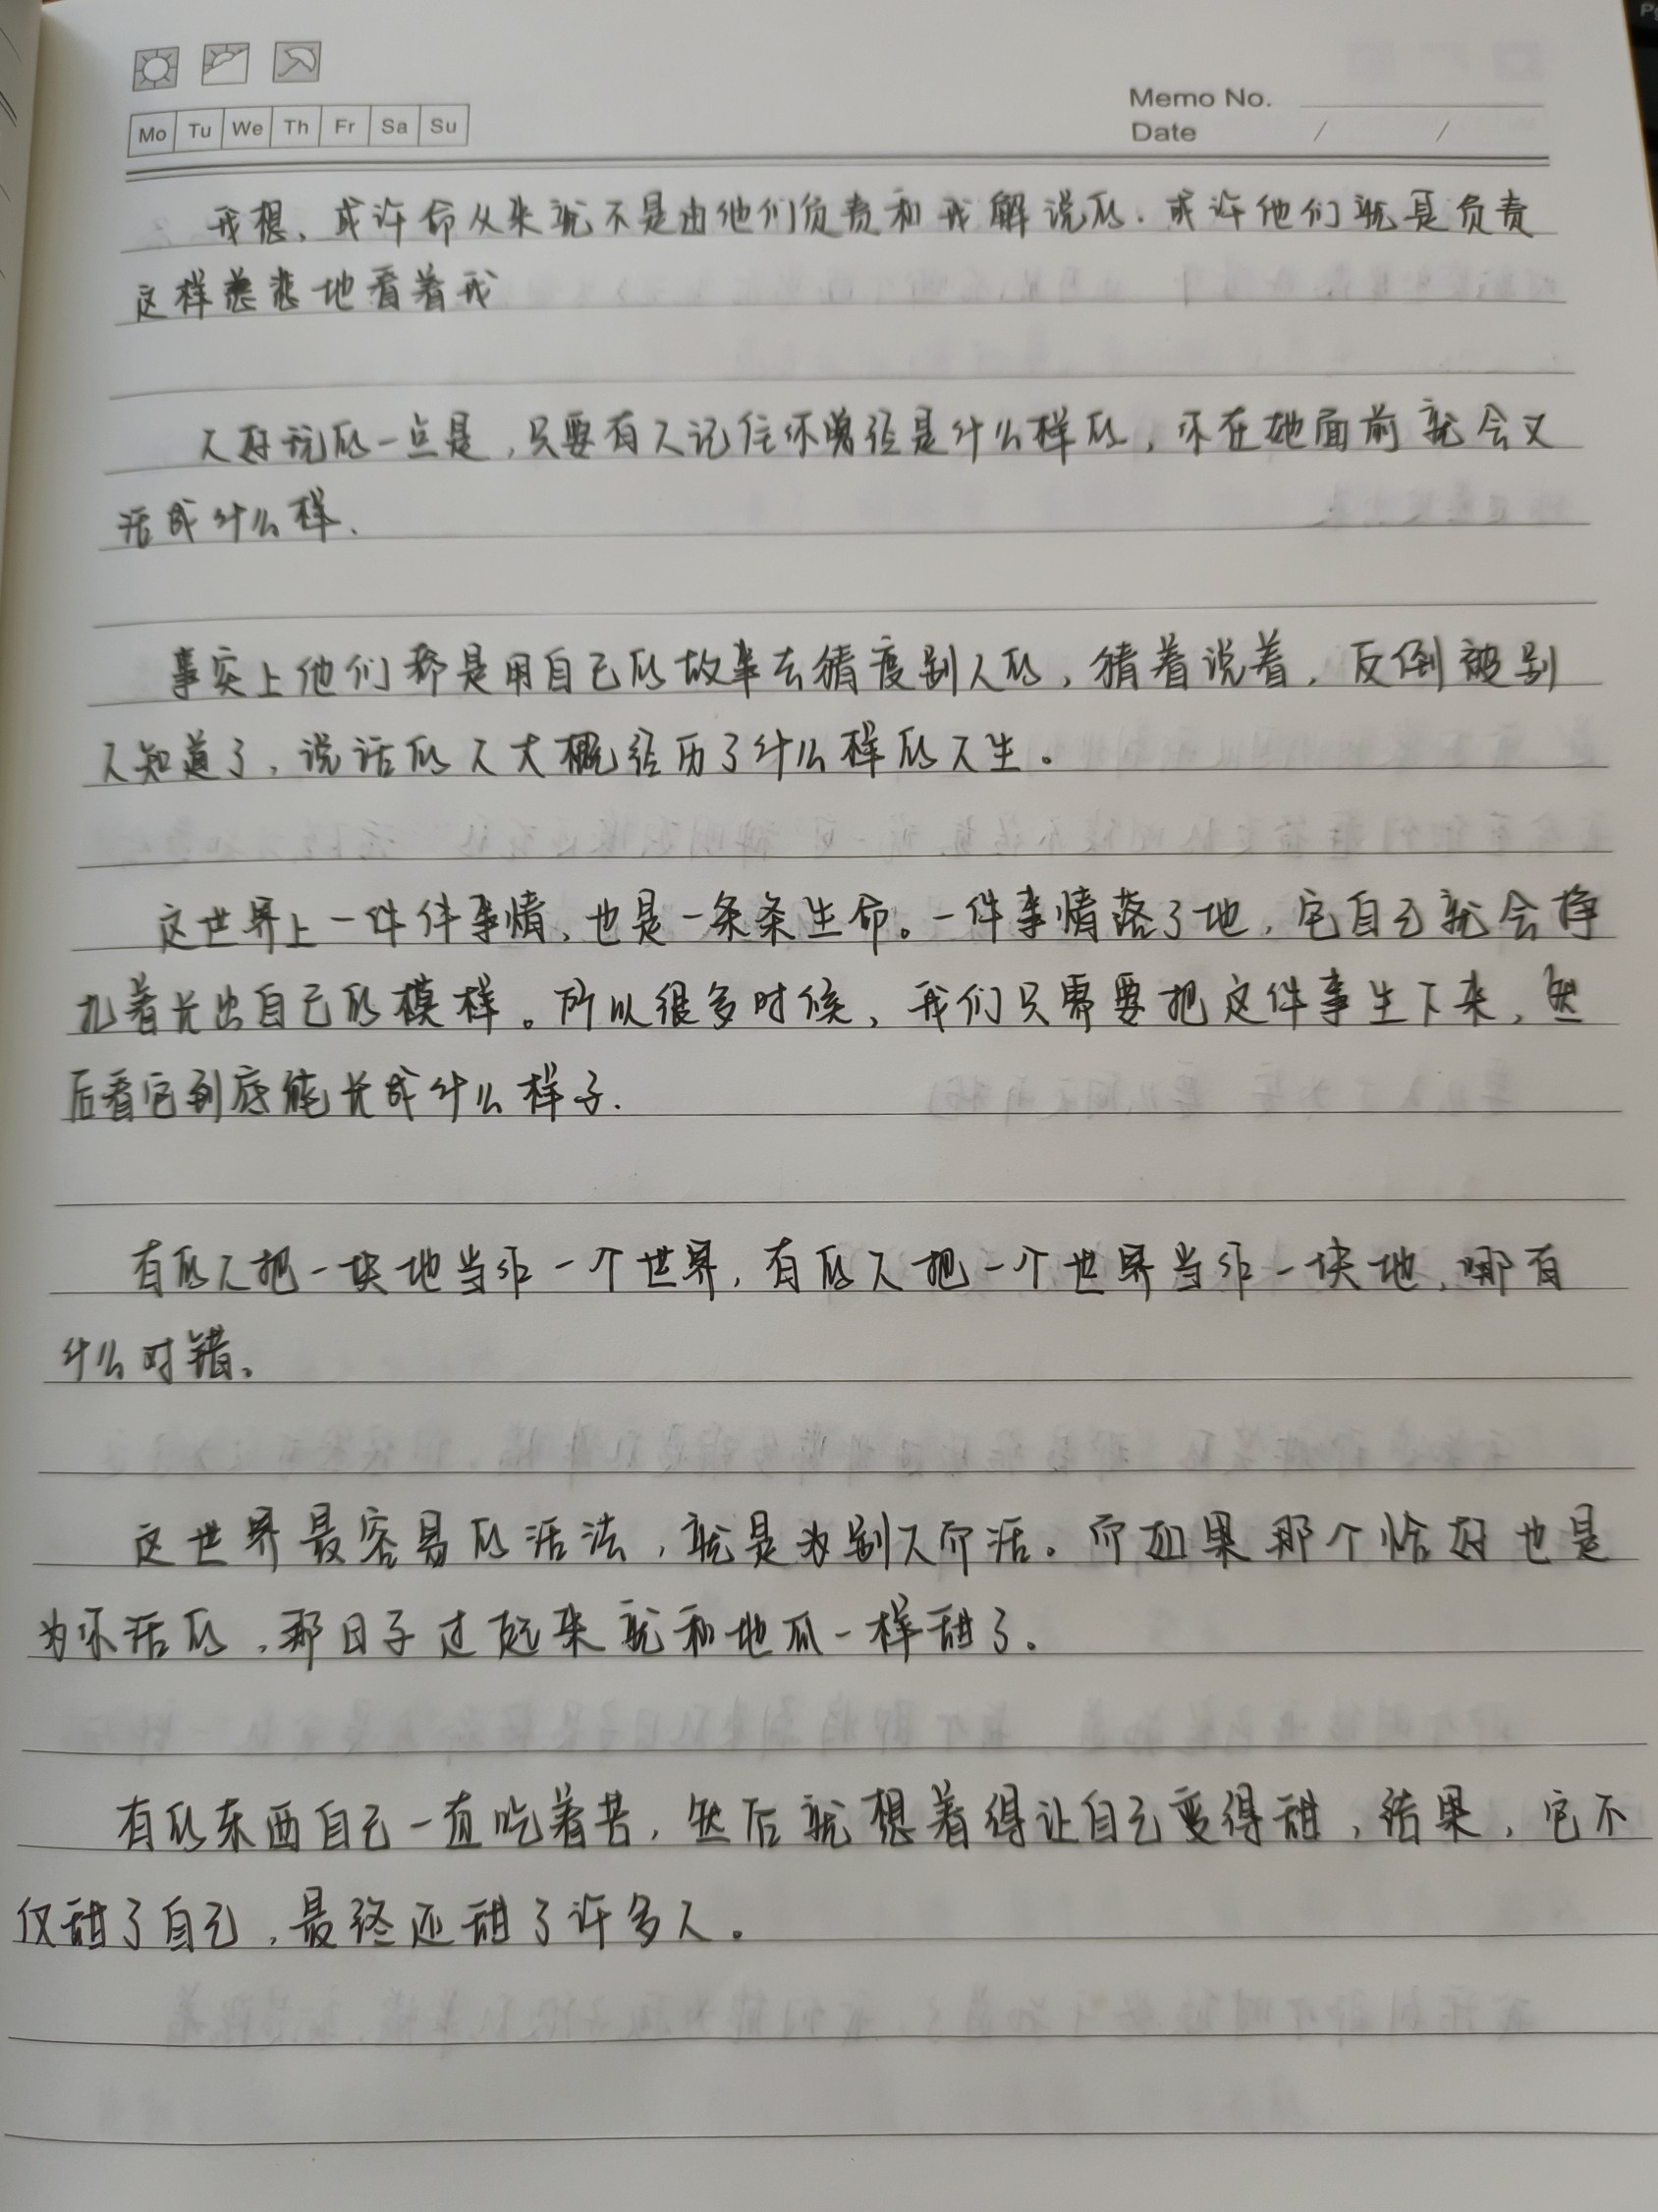 Memo No.
Mo Tu We Th Fr Sa Su
Date / /
我想、或许命从来就不是由他们负责和我解说的. 或许他们就是负责
这样悲悲地看着我
人好玩的一点是,只要有人记住你曾经是什么样的,你在她面前就会又
活成什么样.
事实上他们都是用自己的故事去猜度别人的,猜着说着,反倒被别
人知道了,说话的人大概经历了什么样的人生。
这世界上一件件事情,也是一条条生命。一件事情落了地,它自己就会挣
扎着长出自己的模样。所以很多时候,我们只需要把这件事生下来,然
后看它到底能长成什么样子.
有的人把一块地当作一个世界,有的人把一个世界当作一块地,哪有
什么对错。
这世界最容易的活法,就是为别人而活。而如果那个恰好也是
为你活的,那日子过起来就和地瓜一样甜了。
有的东西自己一直吃着苦,然后就想着得让自己变得甜,结果,它不
仅甜了自己,最终还甜了许多人。